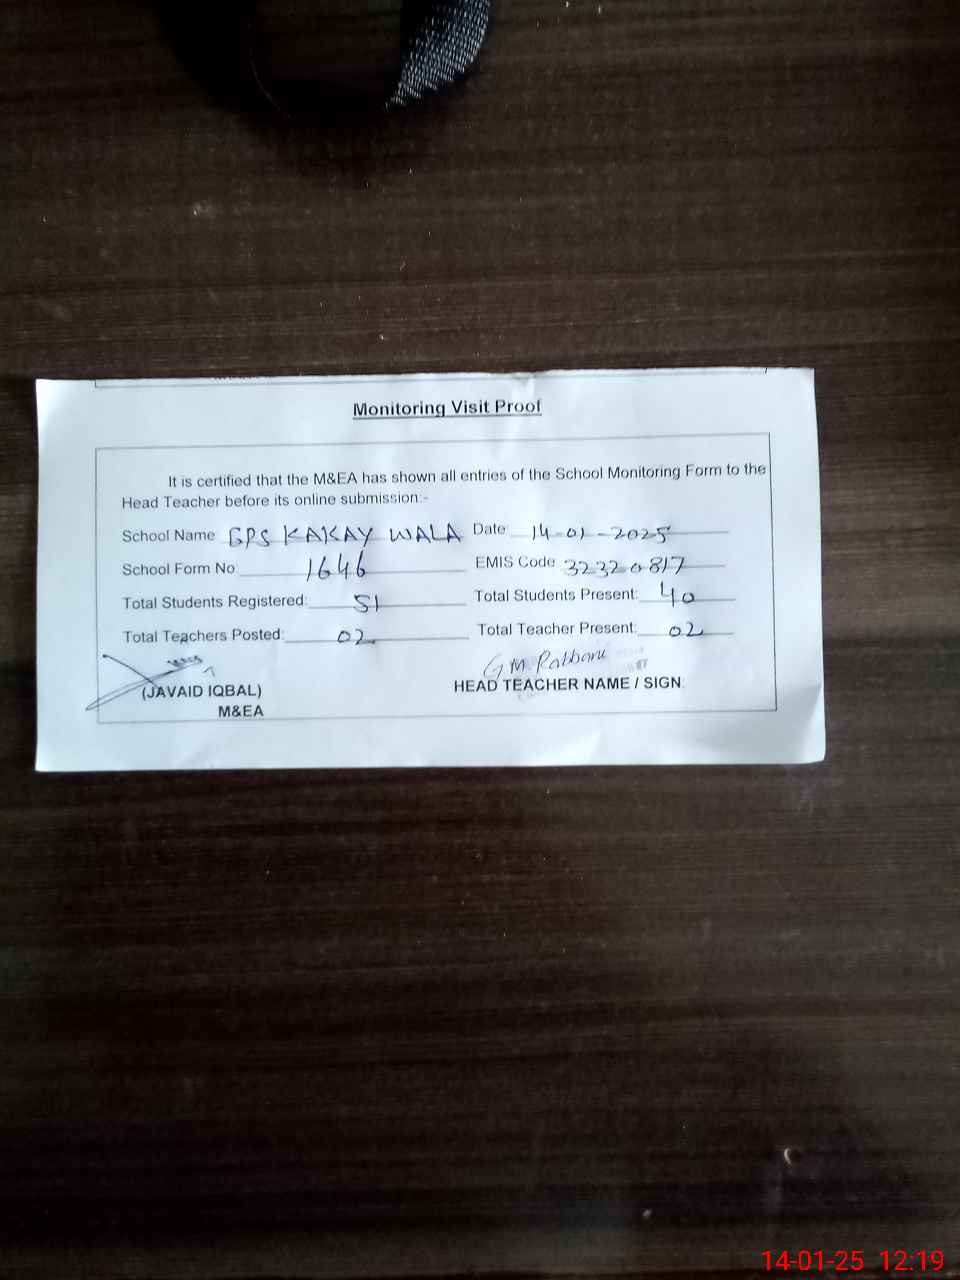 Monitoring Visit Proof
It is certified that the M&EA has shown all entries of the School Monitoring Form to the
Head Teacher before its online submission:-
School Name GPS KAKAY WALA Date 14-01-2025
School Form No 1646 EMIS Code 32320817
Total Students Registered: 51 Total Students Present: 40
Total Teachers Posted: 02 Total Teacher Present: 02
G M Rabbani
(JAVAID IQBAL) HEAD TEACHER NAME / SIGN:
M&EA
14-01-25 12:19